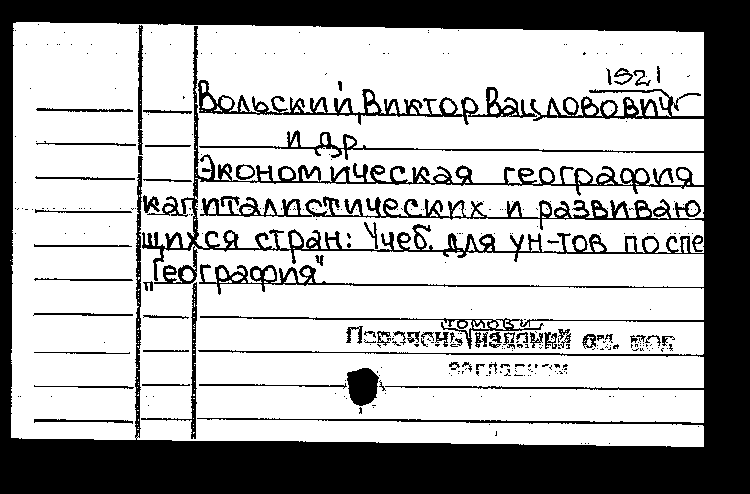 1921
Вольский, Виктор Вацловович
и др.
Экономическая география
капиталистических и развиваю
щихся стран: Учеб. для ун-тов по спе
"География".
Перечень изданий см. под
заглавием